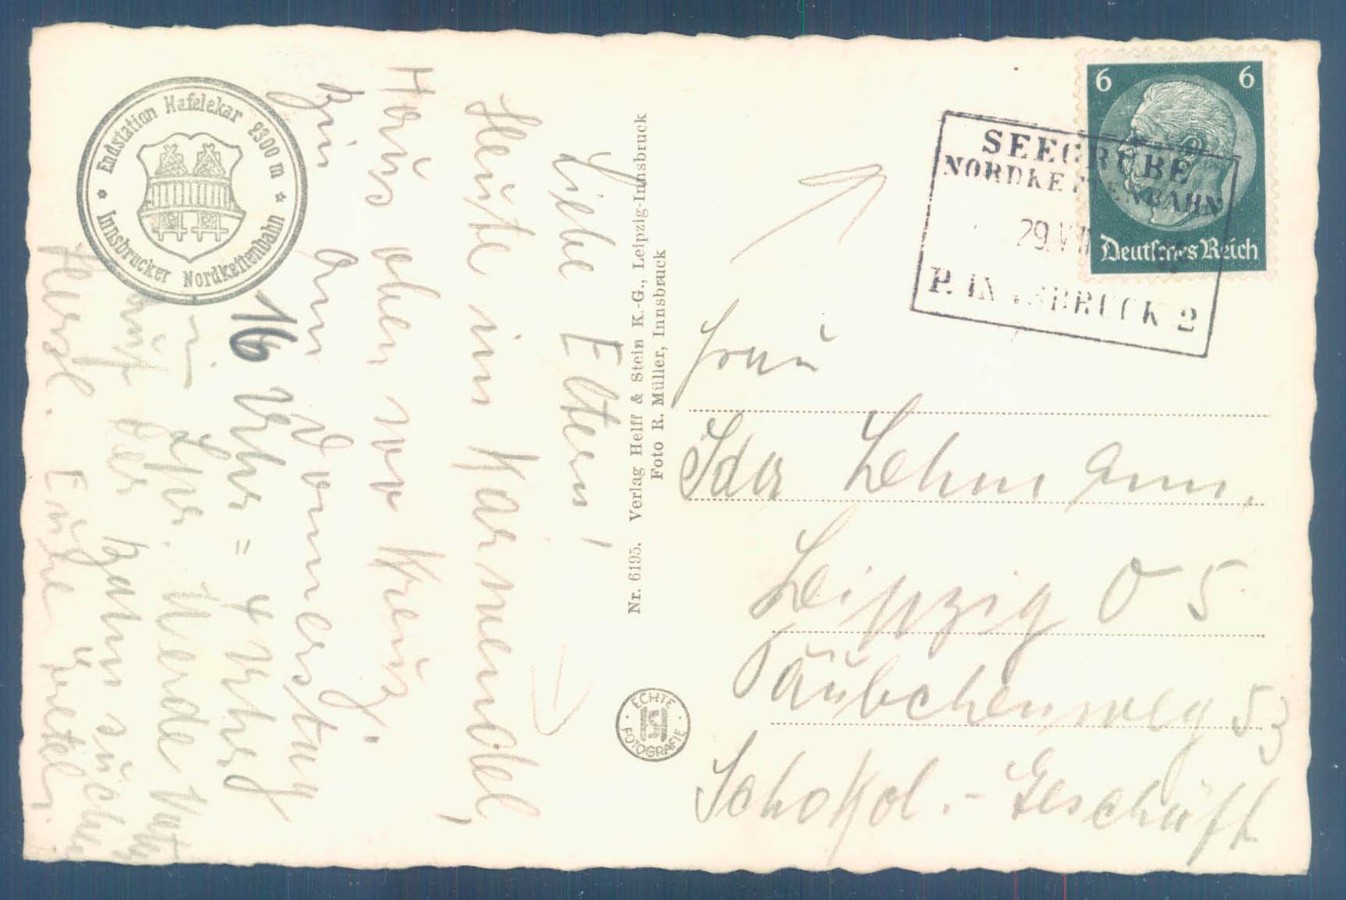 Endstation Hafelekar 2300 m
Innsbrucker Nordkettenbahn
Liebe Eltern!
Heute im Karwendel,
Haus oben wo Kreuz.
Bin am Donnerstag
16 Uhr = 4 Uhr
in Lpz. Werde
auf der Bahn
Herzl. Eure
Nr. 6195. Verlag Helff & Stein K.-G., Leipzig-Innsbruck
Foto R. Müller, Innsbruck
ECHTE
FOTOGRAFIE
6 6
Deutsches Reich
SEEGRUBE
NORDKETTENBAHN
29.VII
P. INNSBRUCK 2
Frau
Ida Lehmann.
Leipzig O 5
Täubchenweg 53
Schokol.-Geschäft